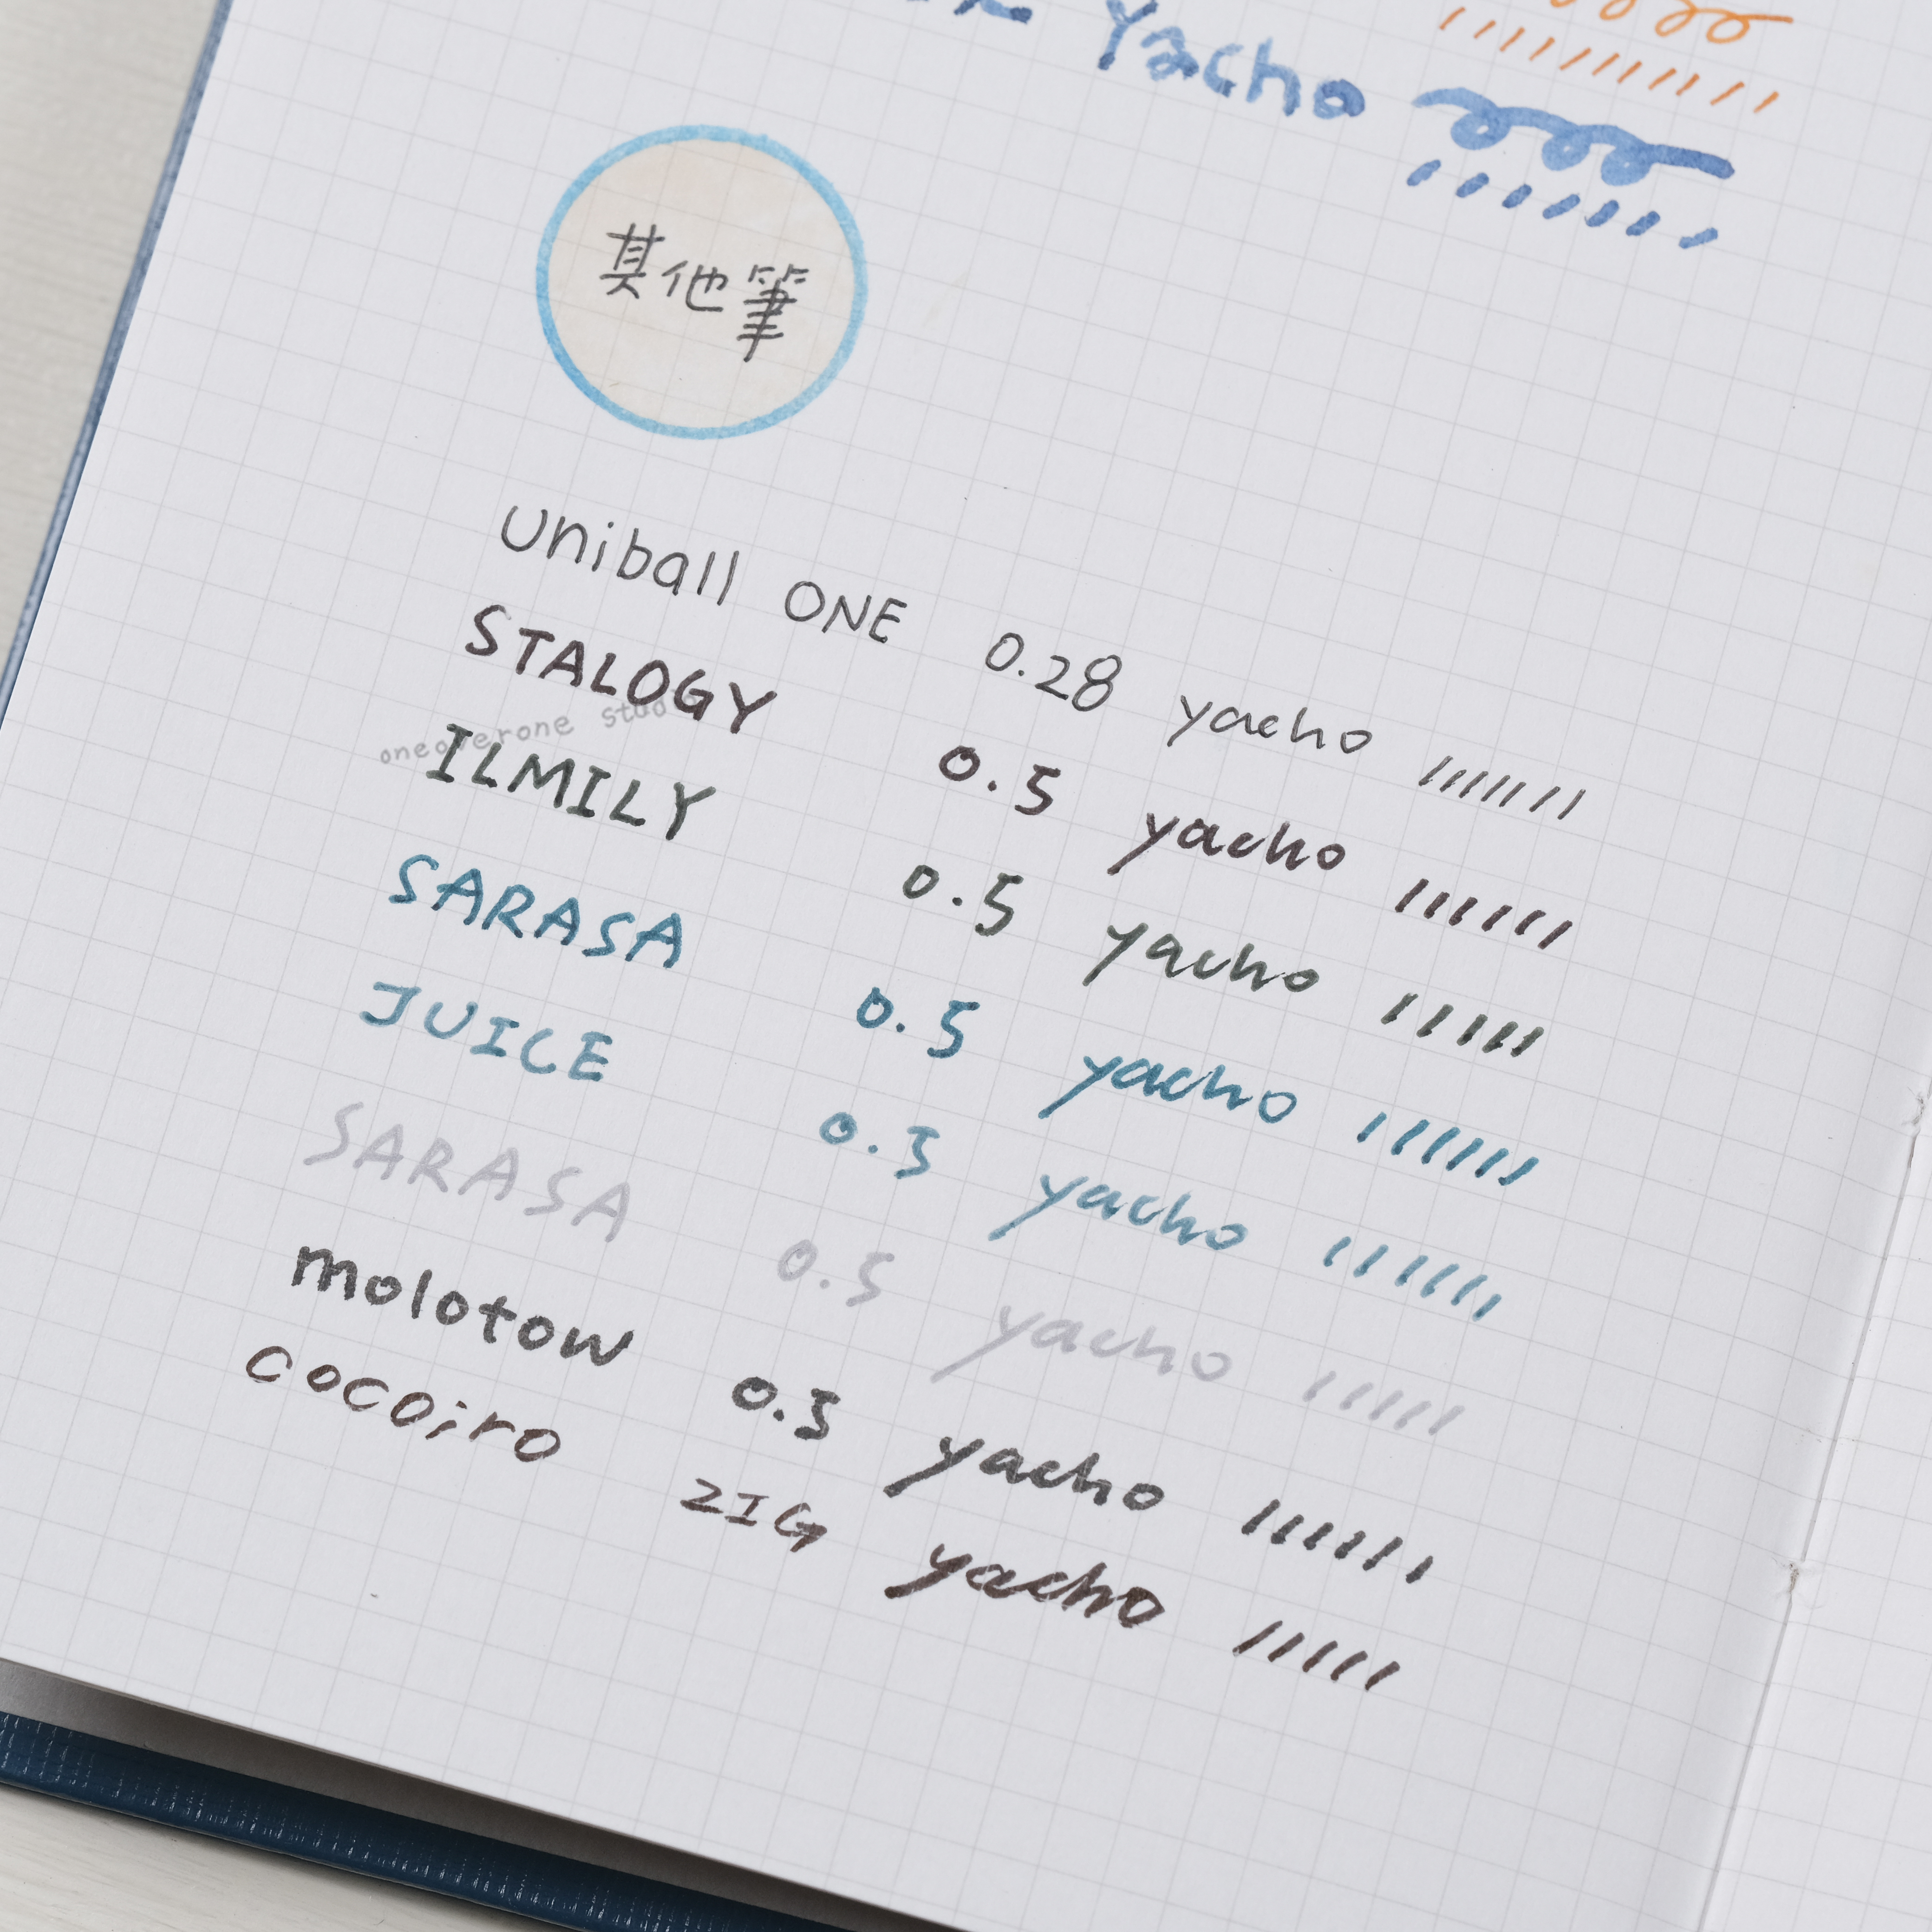 Yacho
其他筆
Uniball ONE 0.28 yacho
STALOGY 0.5 yacho
oneoverone studio
ILMILY 0.5 yacho
SARASA 0.5 yacho
JUICE 0.3 yacho
SARASA 0.5 yacho
molotow 0.3 yacho
cocoiro ZIG yacho